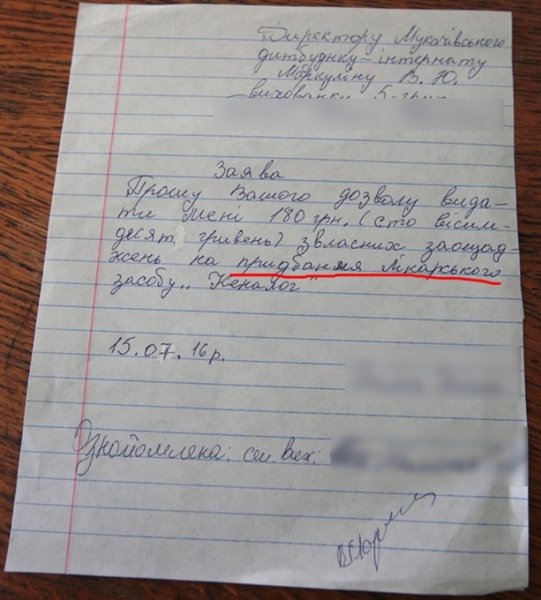 Директору Мукачівського
дитбудинку-інтернату
Маркуліну В. Ю.
вихованки 5-групи
Заява
Прошу Вашого дозволу вида-
ти мені 180 грн. (сто вісім-
десят гривень) з власних заощад-
жень на придбання лікарського
засобу „Кеналог"
15.07.16р.
Ознайомлена: сен. вих: